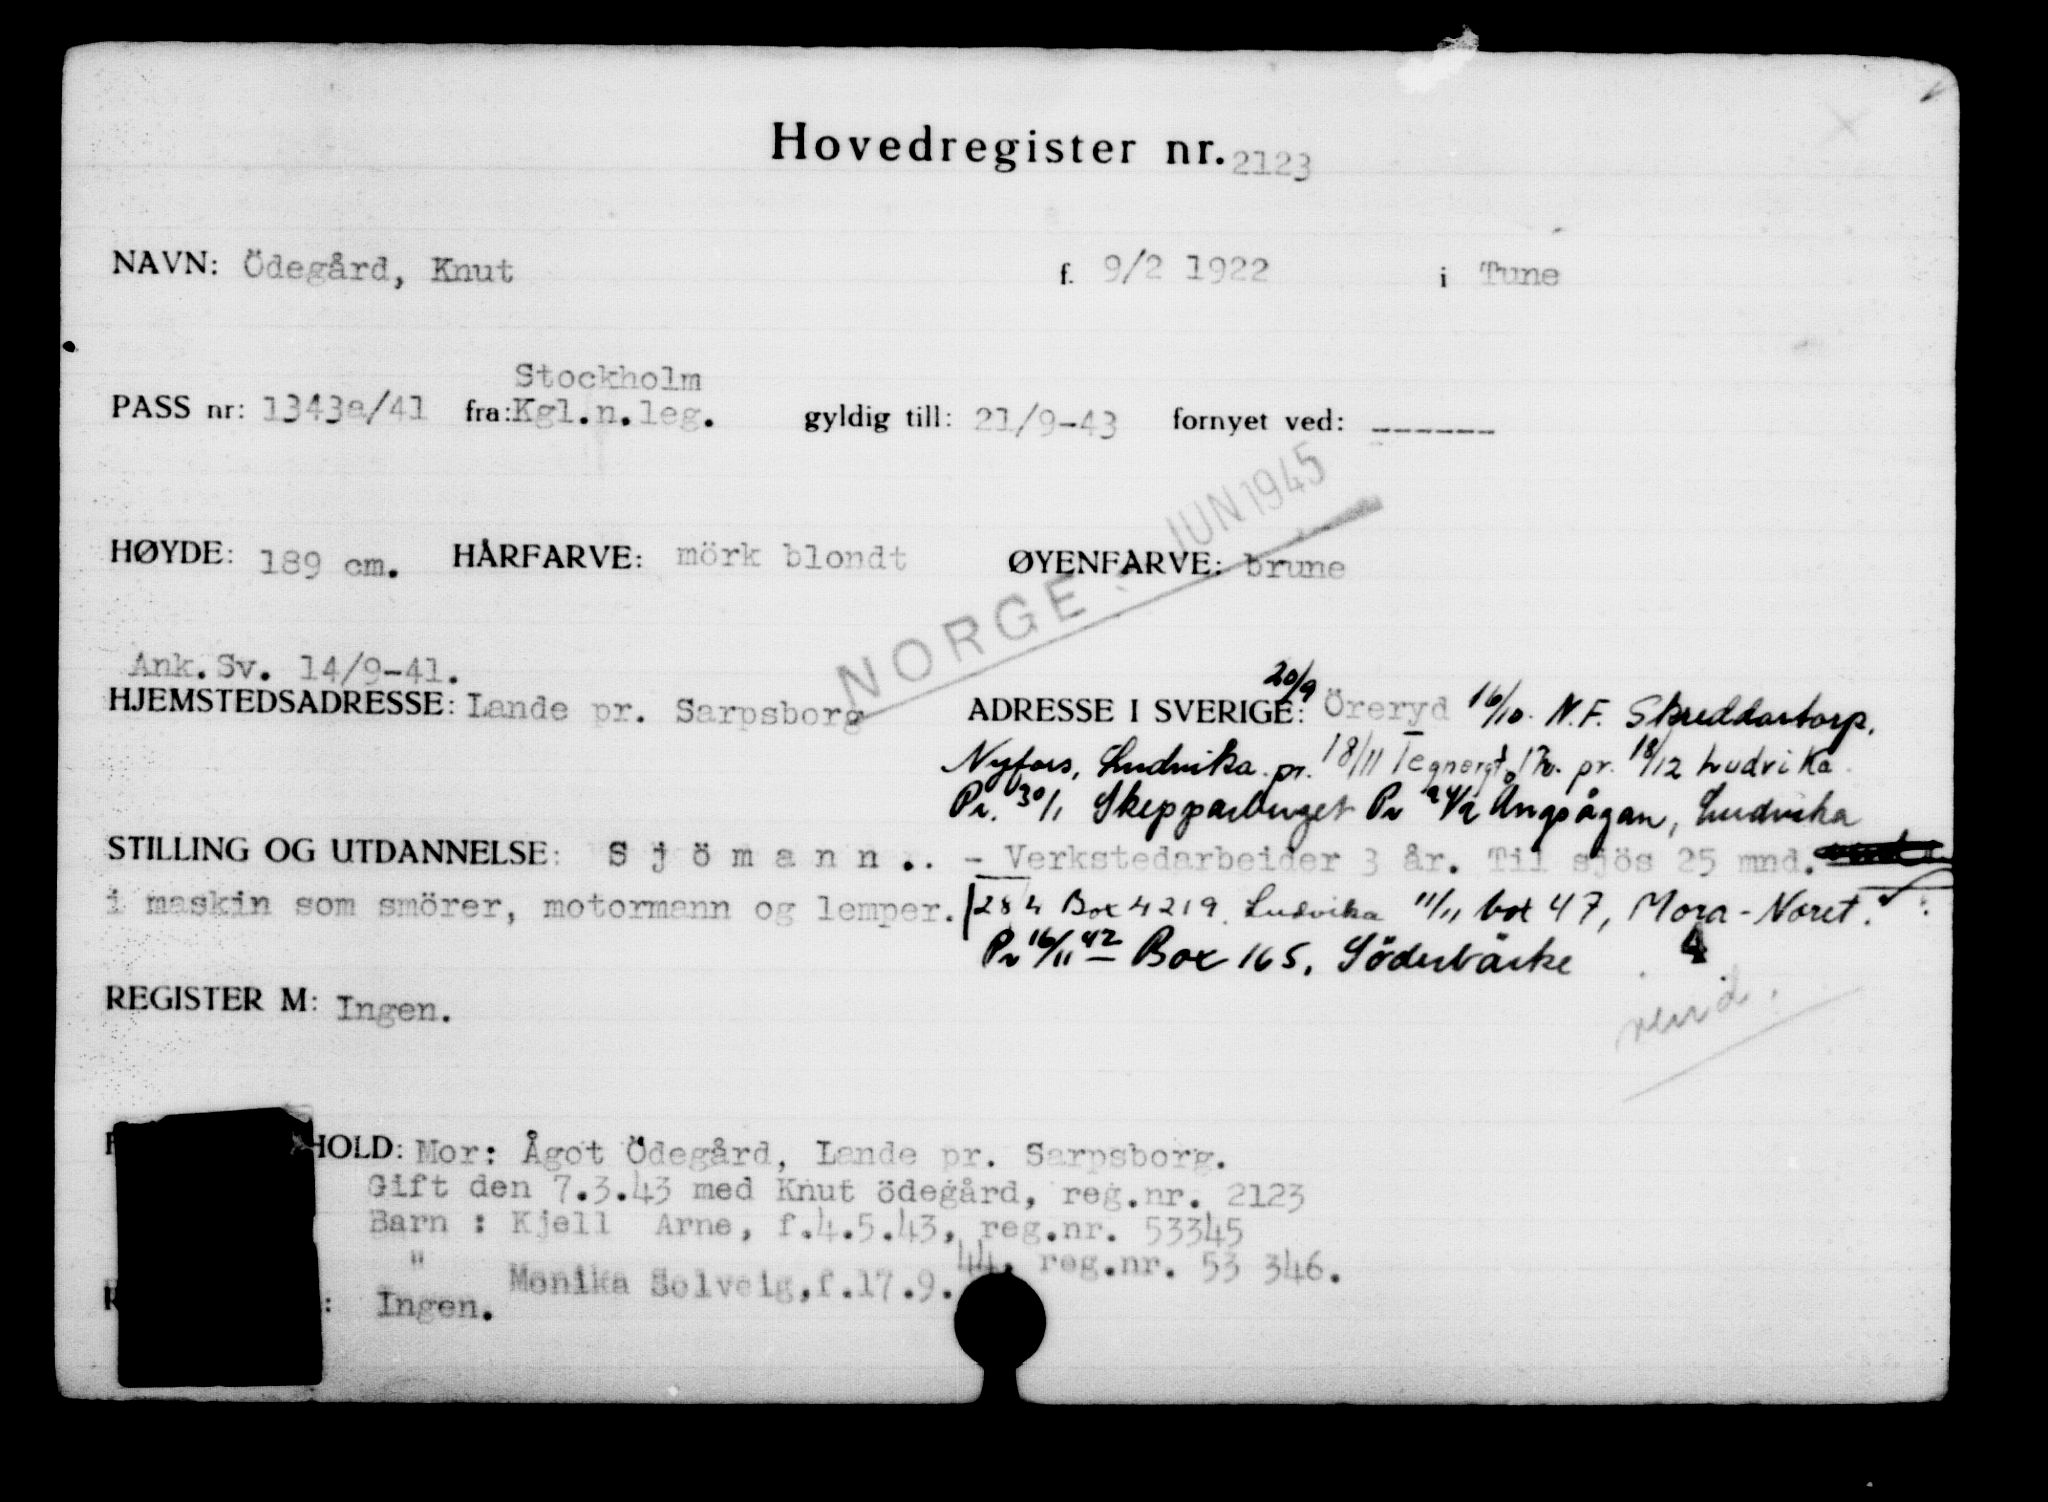 Hovedregister nr. 2123
NAVN: Ödegård, Knut f. 9/2 1922 i Tune
Stockholm
PASS nr: 1343a/41 fra: Kgl.n.leg. gyldig till: 21/9-43 fornyet ved: ------
JUN 1945
HØYDE: 189 cm. HÅRFARVE: mörk blondt ØYENFARVE: brune
NORGE
Ank.Sv. 14/9-41.
20/9
HJEMSTEDSADRESSE: Lande pr. Sarpsborg ADRESSE I SVERIGE: Öreryd 16/10. N.F. Skreddartorp.
Nyfors, Ludvika. pr. 18/11 pr. 18/12 Ludvika
Pr. 30/1 Skepparbuget Pr Ungsågan, Ludvika
STILLING OG UTDANNELSE: Sjömann.. - Verkstedarbeider 3 år. Til sjös 25 mnd.
i maskin som smörer, motormann og lemper. 28 4 Box 4219. Ludvika 11/11 box 47, Mora-Noret.
Pr 16/11 42 Box 165, Söderbärke 4
REGISTER M: Ingen.
HOLD: Mor: Ågot Ödegård, Lande pr. Sarpsborg.
Gift den 7.3.43 med Knut ödegård, reg.nr. 2123
Barn : Kjell Arne, f.4.5.43, reg.nr. 53345
" Monika Solveig, f.17.9.44, reg.nr. 53 346.
: Ingen.